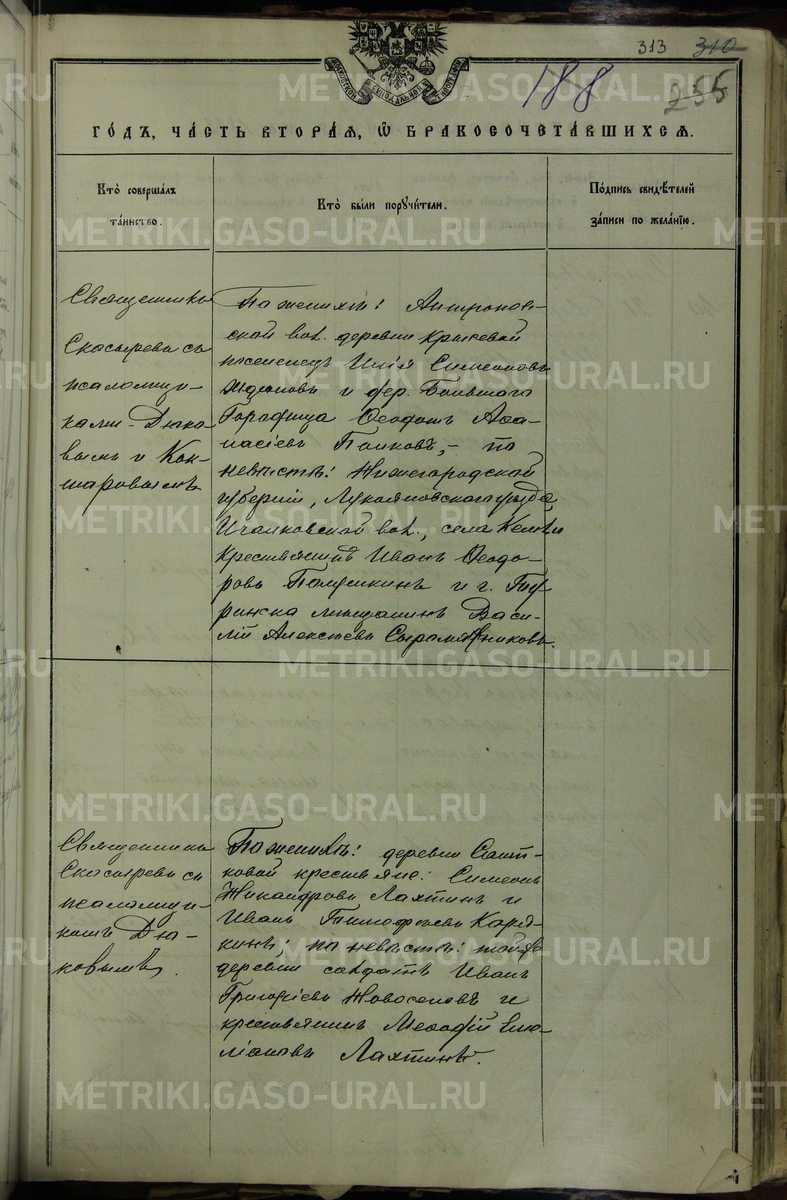 313 310
188 255
МОСКОВСКОЙ СѴНОДАЛЬНОЙ ТИПОГРАФІИ
ГОДЪ, ЧАСТЬ ВТОРАЯ, Ѡ БРАКОСОЧЕТАВШИХСЯ.
Кто совершалъ
таинство.
Кто были поручители.
Подпись свидѣтелей
записи по желанію.
Священникъ
Скосыревъ съ
псаломщи-
ками Дюко-
вымъ и Кок-
шаровымъ
По женихѣ: Антроповс-
ской вол. деревни
поселенецъ Илія Симеоновъ
и дер. Большаго
Ѳеодотъ Аѳа-
насіевъ Поповъ, - по
невѣстѣ: Нижегородской
губерніи, Лукояновскаго уѣзда,
Ичалковской вол., села Кемли
крестьянинъ Иванъ Ѳеодо-
ровъ и г. Ту-
ринска мѣщанинъ Васи-
лій Алексѣевъ Сыромятниковъ.
Священникъ
Скосыревъ съ
псаломщи-
комъ Дю-
ковымъ.
По женихѣ: деревни Саит-
ковой крестьяне: Симеонъ
Никандровъ Лахтинъ и
Иванъ Тимофѣевъ Каря-
кинъ; по невѣстѣ: той же
деревни солдатъ Иванъ
Григоріевъ Новоселовъ и
крестьянинъ Меѳодій Еми-
ліановъ Лахтинъ.
METRIKI.GASO-URAL.RU